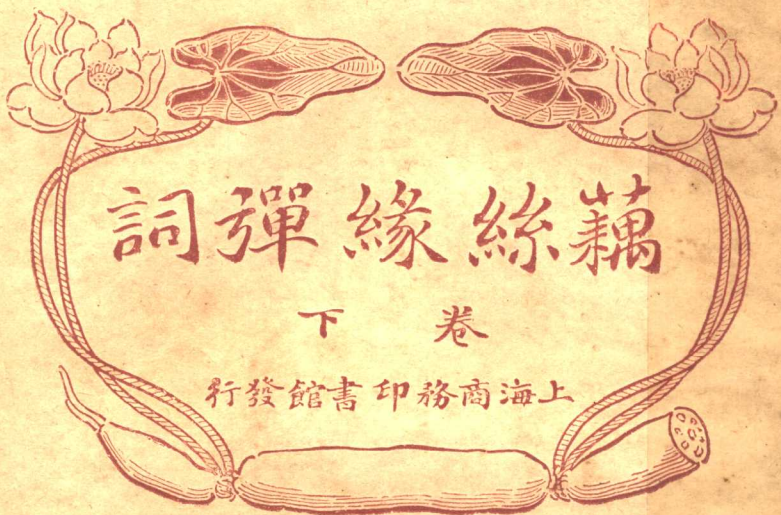 藕絲緣彈詞
卷下
上海商務印書館發行